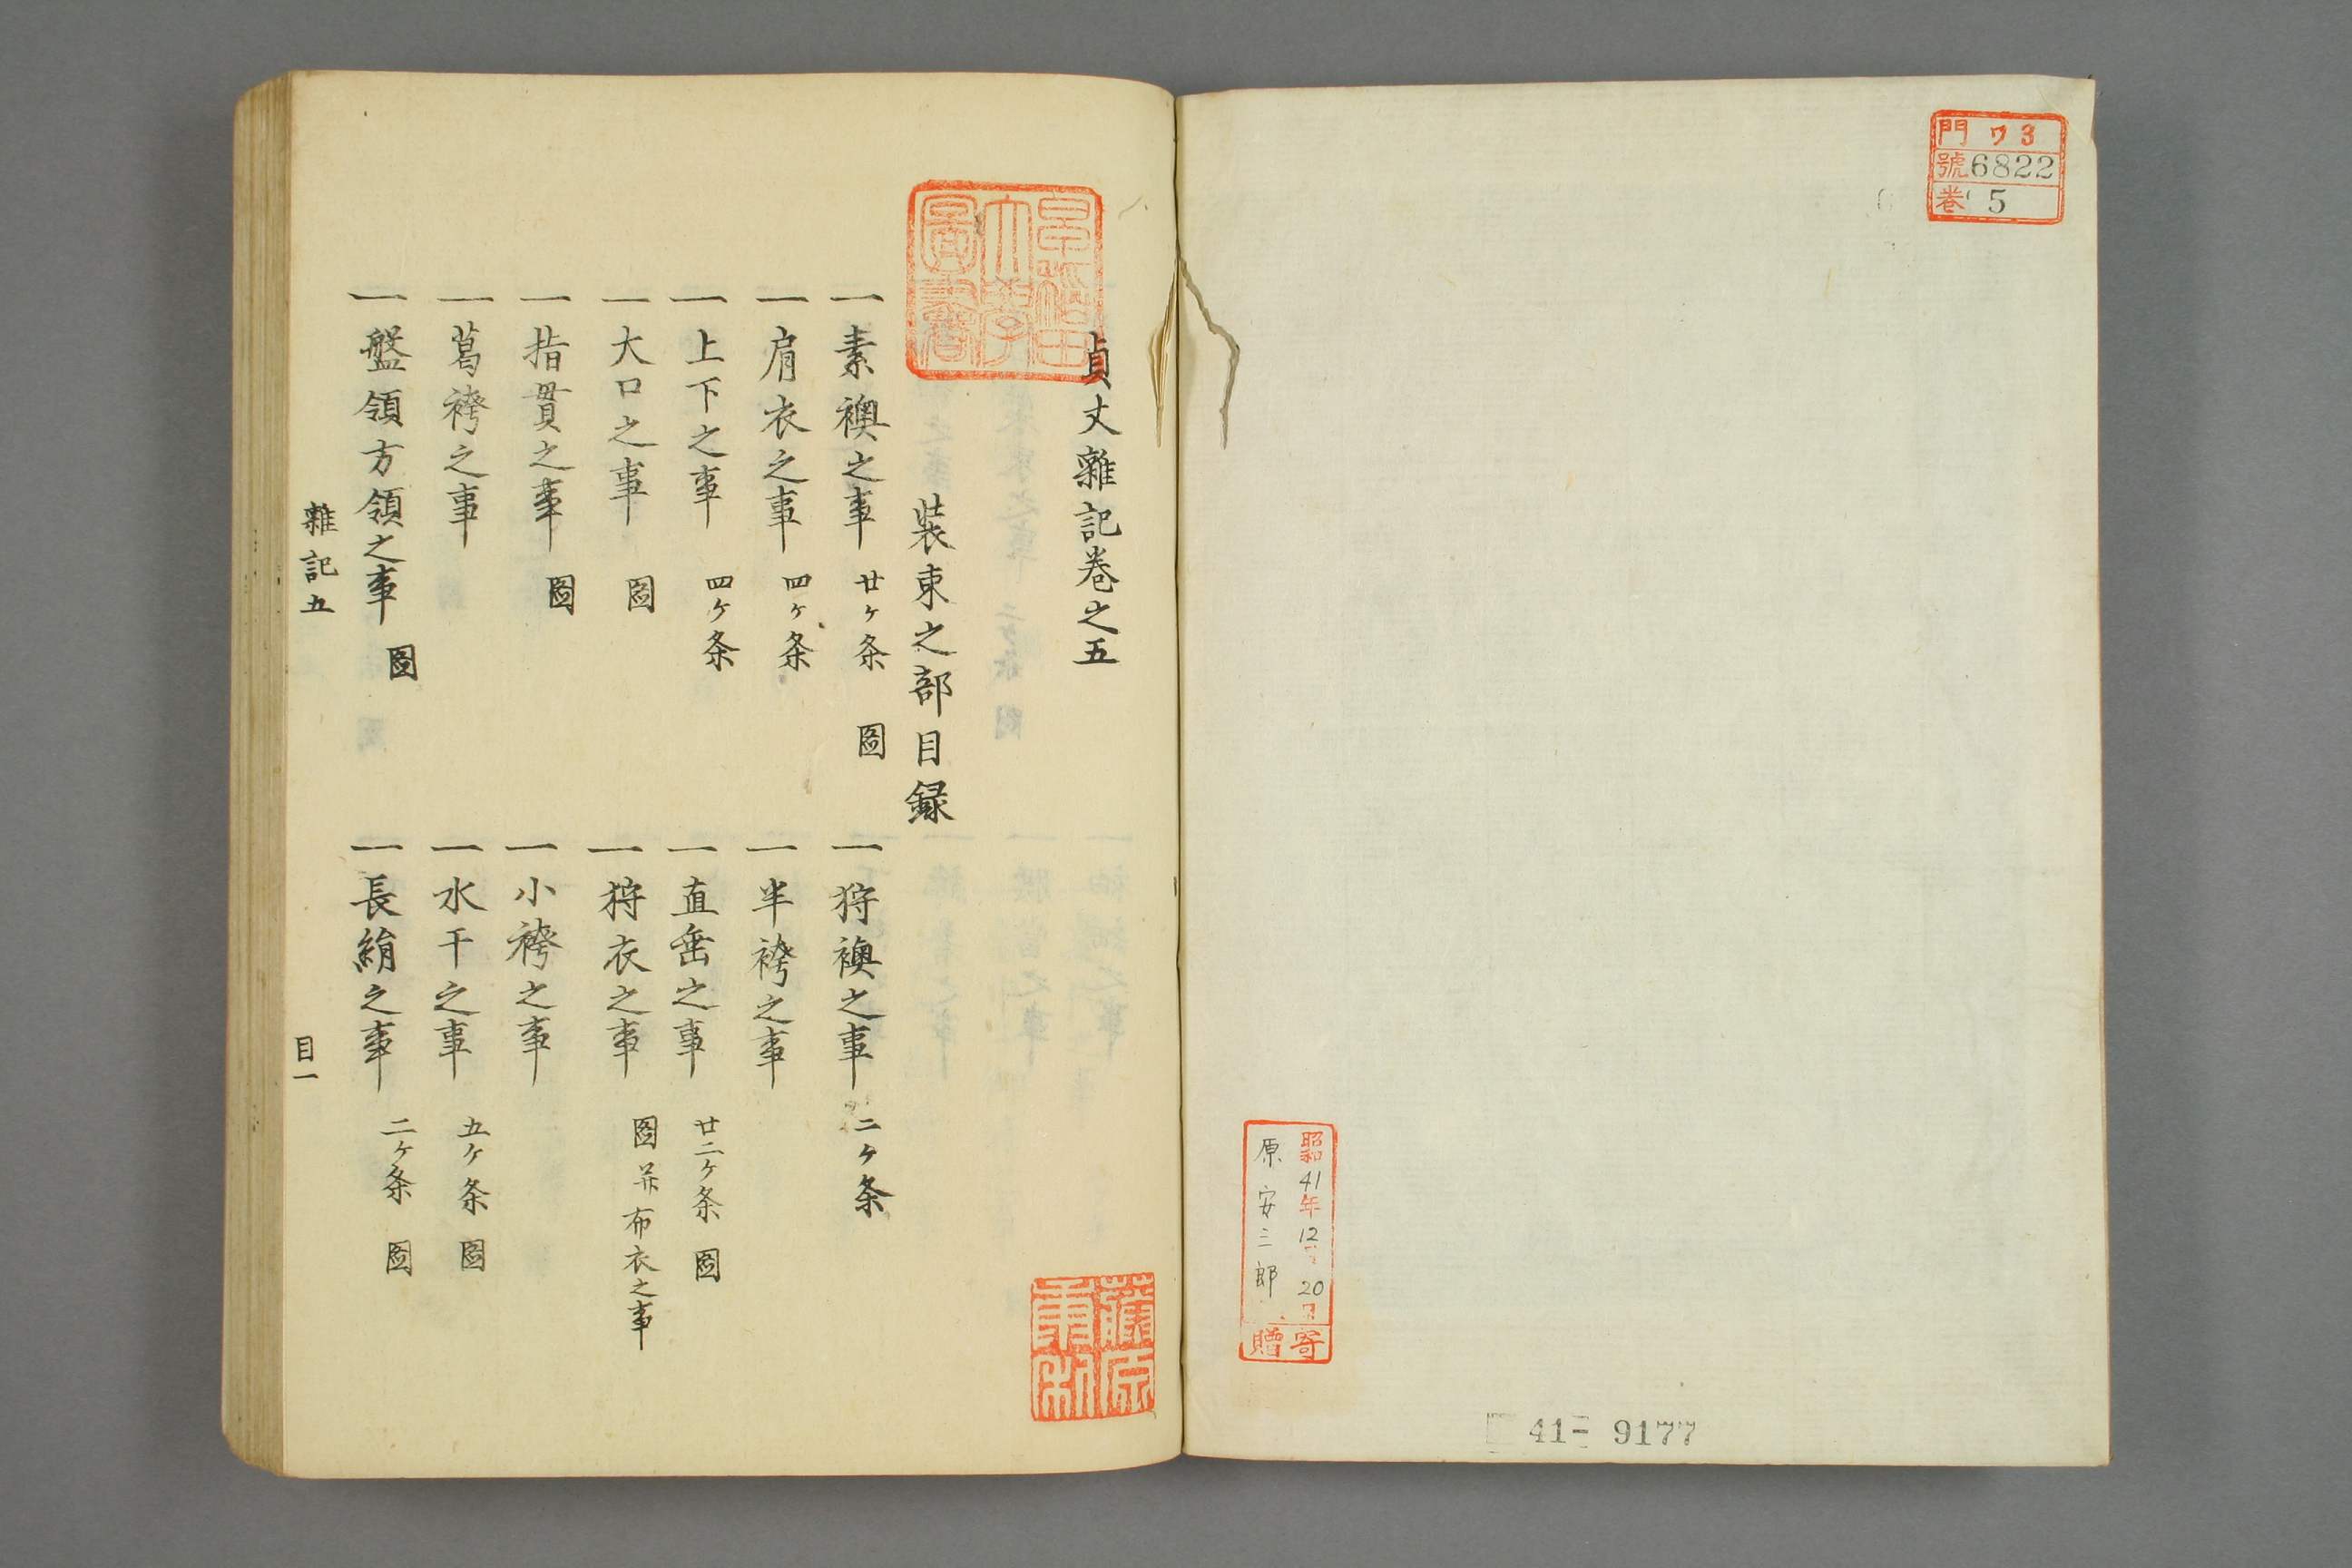 門 ワ3
號 6822
巻 5
昭和41年12月20日
原安三郎
寄贈
41- 9177
早稲田大學圖書
貞丈雜記巻之五
裝束之部目録
一素襖之事 廿ヶ条 圖
一肩衣之事 四ヶ条
一上下之事 四ヶ条
一大口之事 圖
一指貫之事 圖
一葛袴之事
一盤領方領之事 圖
一狩襖之事 二ヶ条
一半袴之事
一直垂之事 廿二ヶ条 圖
一狩衣之事 圖并布衣之事
一小袴之事
一水干之事 五ヶ条 圖
一長絹之事 二ヶ条 圖
雜記五
目一